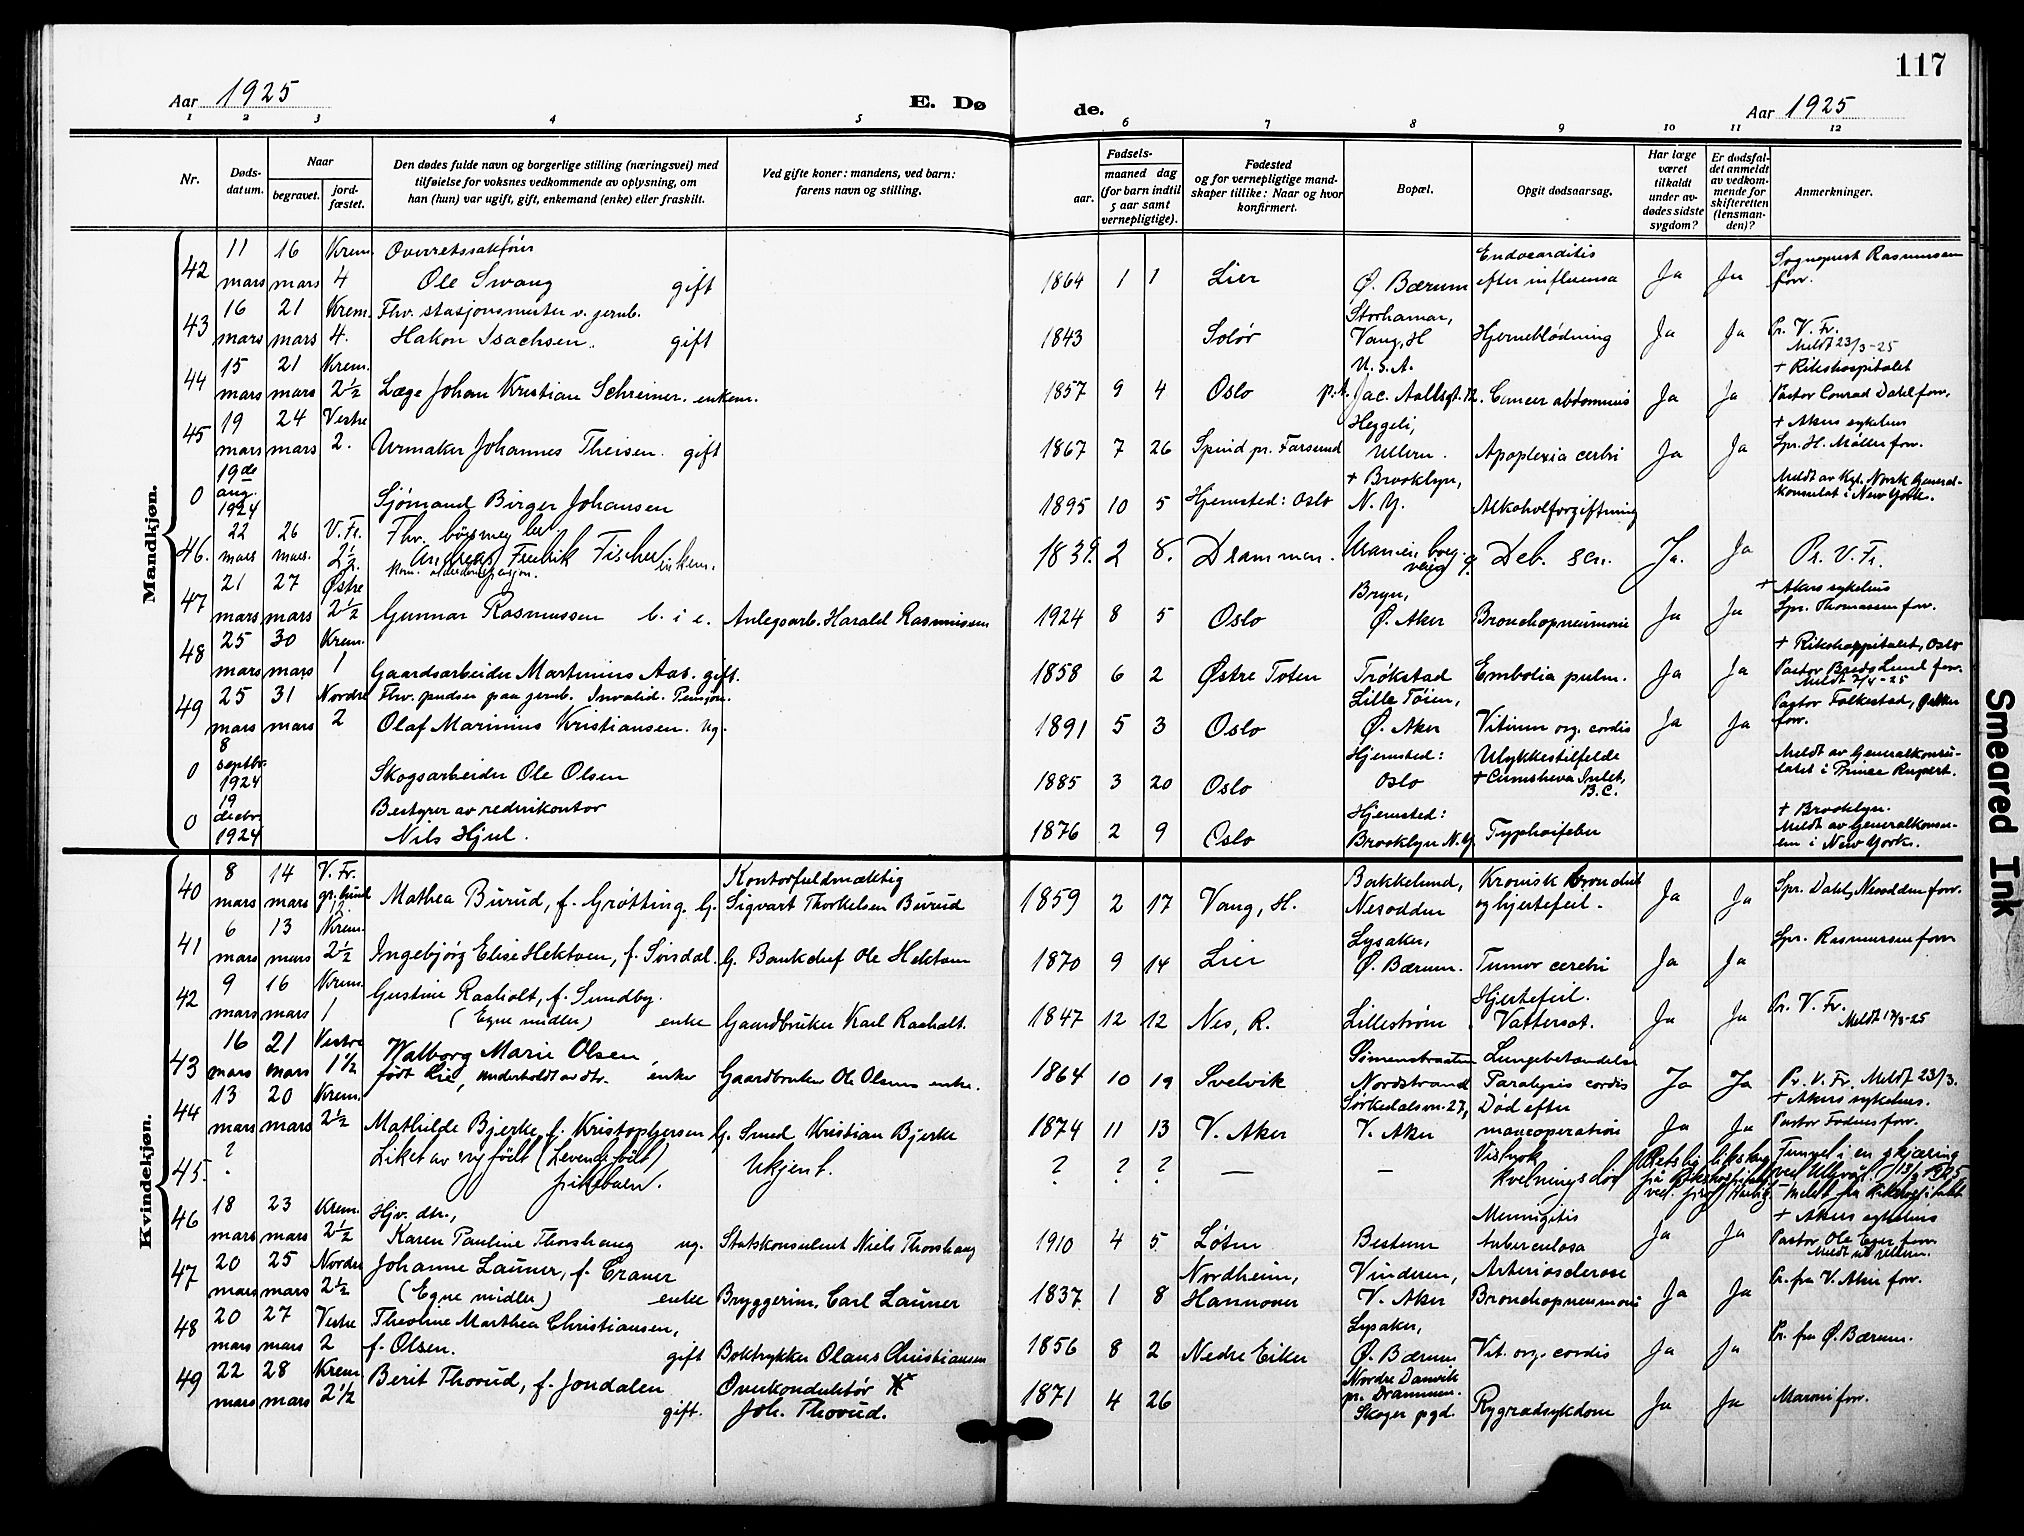 117
Aar 1925
E. Døde.
Aar 1925
1 2 3 4 5 6 7 8 9 10 11 12
Nr.
Døds-
datum.
Naar
begravet.
jord-
fæstet.
Den dødes fulde navn og borgerlige stilling (næringsvei) med
tilføielse for voksnes vedkommende av oplysning, om
han (hun) var ugift, gift, enkemand (enke) eller fraskilt.
Ved gifte koner: mandens, ved barn:
farens navn og stilling.
Fødsels-
aar.
maaned dag
(for barn indtil
5 aar samt
vernepligtige).
Fødested
og for vernepligtige mand-
skaper tillike: Naar og hvor
konfirmert.
Bopæl.
Opgit dødsaarsag.
Har læge
været
tilkaldt
under av-
dødes sidste
sygdom?
Er dødsfal-
det anmeldt
av vedkom-
mende for
skifteretten
(lensman-
den)?
Anmerkninger.
Mandkjøn.
42 11 mars 16 mars Krem. 4 Overretssakfører Ole Swang gift 1864 1 1 Lier Ø. Bærum Endocarditis efter influensa Ja Ja Sogneprest Rasmussen forr.
43 16 mars 21 mars Krem. 4. Fhv. stasjonsmester v. jernb. Hakon Isachsen. gift 1843 Solør Storhamar, Vang, H Hjerneblødning Ja Ja Pr. V. Fr. Meldt 23/3-25
44 15 mars 21 mars Krem. 2½ Læge Johan Kristian Schreiner. enkem. 1857 9 4 Oslo U.S.A. p.t. Jac. Aallsgt. Cancer abdominis Ja Ja + Rikshospitalet Pastor Conrad Dahl forr.
45 19 mars 24 mars Vestre 2. Urmaker Johannes Theisen. gift 1867 7 26 Spind pr. Farsund Heggeli, Ullern. Apoplexia cerbri Ja Ja + Akers sykehus Spr. H. Møller forr.
0 19de aug. 1924 Sjømand Birger Johansen 1895 10 5 Hjemsted: Oslo + Brooklyn, N.Y. Alkoholforgiftning Meldt av Kgl. Norsk General-konsulat i New York.
46. 22 mars 26 mars. V. Fr. 2½. Fhv. Andreas Fredrik Fischer enkem. 1839. 2 8. Drammen. Uranienborg- veig 9. Deb. sen. Ja. Ja Pr. V. Fr.
47 21 mars 27 mars Østre 2½ Gunnar Rasmussen b. i e. Anlegsarb. Harald Rasmussen 1924 8 5 Oslo Bryn, Ø. Aker Bronchopneumonie Ja Ja + Akers sykehus Spr. Thomassen forr.
48 25 mars 30 mars Krem. 1 Gaardsarbeider Martinius Aas. gift. 1858 6 2 Østre Toten Trøkstad Embolia pulm. Ja Ja + Rikshospitalet, Oslo Pastor Lund forr. Meldt 2/4-25
49 25 mars 31 mars Nordre 2 Fhv. pudser paa jernb. Invalid. Pensjon. Olaf Marinius Kristiansen. ug. 1891 5 3 Oslo Lille Tøien, Ø. Aker Vitium org. cordis Ja Ja Pastor Falkestad, forr.
0 8 septbr. 1924 Skogsarbeider Ole Olsen 1885 3 20 Oslo Hjemsted: Oslo Ulykkestilfelde + Cumshewa Inlet, B.C. Meldt av Generalkonsu-latet i Prince Rupert.
0 19 decbr. 1924 Bestyrer av rederikontor Nils Hjul. 1876 2 9 Oslo Hjemsted: Brooklyn N.Y. Typhoifeber + Brooklyn. Meldt av Generalkonsu-len i New York.
Kvindekjøn.
40 8 mars 14 mars V. Fr. gr. lund 12. Mathea Burud, f. Grøtting. G. Kontorfuldmæktig Sigvart Thorkelsen Burud 1859 2 17 Vang, H. Bakkelund, Nesodden Kronisk bronchit og hjertefeil. Ja Ja Spr. Dahl, Nesodden forr.
41 6 mars 13 mars Krem. 2½ Ingebjørg Elise Hektoen, f. Sørsdal. G. Bankchef Ole Hektoen 1870 9 14 Lier Lysaker, Ø. Bærum. Tumor cerebri Ja Ja Spr. Rasmussen forr.
42 9 mars 16 mars Krem. 1 Gustine Raaholt, f. Sundby. (Egne midler) enke Gaardbruker Karl Raaholt. 1847 12 12 Nes, R. Lillestrøm Hjertefeil. Vattersot. Ja Ja Pr. V. Fr. Meldt 17/3-25
43 16 mars 21 mars Vestre 1½ Walborg Marie Olsen, født Lie, underholdt av dtr. enke Gaardbruker Ole Olsens enke. 1864 10 19 Svelvik Simensbraaten Nordstrand Lungebetændelse Paralysis cordis Ja Ja Pr. V. Fr. Meldt 23/3.
44 13 mars 20 mars Krem. 2½ Mathilde Bjerke, f. Kristophersen G. Smed Kristian Bjerke 1874 11 13 V. Aker Sørkedalsvn. 27, V. Aker Død efter maveoperation Ja Ja + Akers sykehus. Pastor Fodnes forr.
45. ? Liket av nyfødt (Levende født) pikebarn. Ukjent. ? ? ? — — Visnok kvelningsdød Funnet i en skjæring ved Ullevål. 13/3 1925 - meldt fra Rikshospitalet
46 18 mars 23 mars Krem. 2½ Hjv. dtr., Karen Pauline Thorshaug ug. Statskonsulent Niels Thorshaug 1910 4 5 Løten Bestum Meningitis tuberculosa Ja Ja + Akers sykehus Pastor Ole Eger forr. Meldt til Ullern.
47 20 mars 25 mars Nordre 2½ Johanne Launer, f. Craner (Egne midler) enke Bryggerim. Carl Launer 1837 1 8 Nordheim, Hannover Vinderen, V. Aker Arteriosclerose Bronchopneumoni Ja Ja Pr. fra V. Aker forr.
48 20 mars 27 mars Vestre 2 Theoline Marthea Christiansen, f. Olsen. gift Boktrykker Olaus Christiansen 1856 8 2 Nedre Eiker Lysaker, Ø. Bærum Vit. org. cordis Ja Ja Pr. fra Ø. Bærum.
49 22 mars 28 mars Krem. 2½ Berit Thorud, f. Jondalen gift. Overkonduktør Joh. Thorud. 1871 4 26 Nordre Danvik pr. Drammen. Skoger pgd. Rygradsykdom Ja Ja Maroni forr.
Smeared Ink